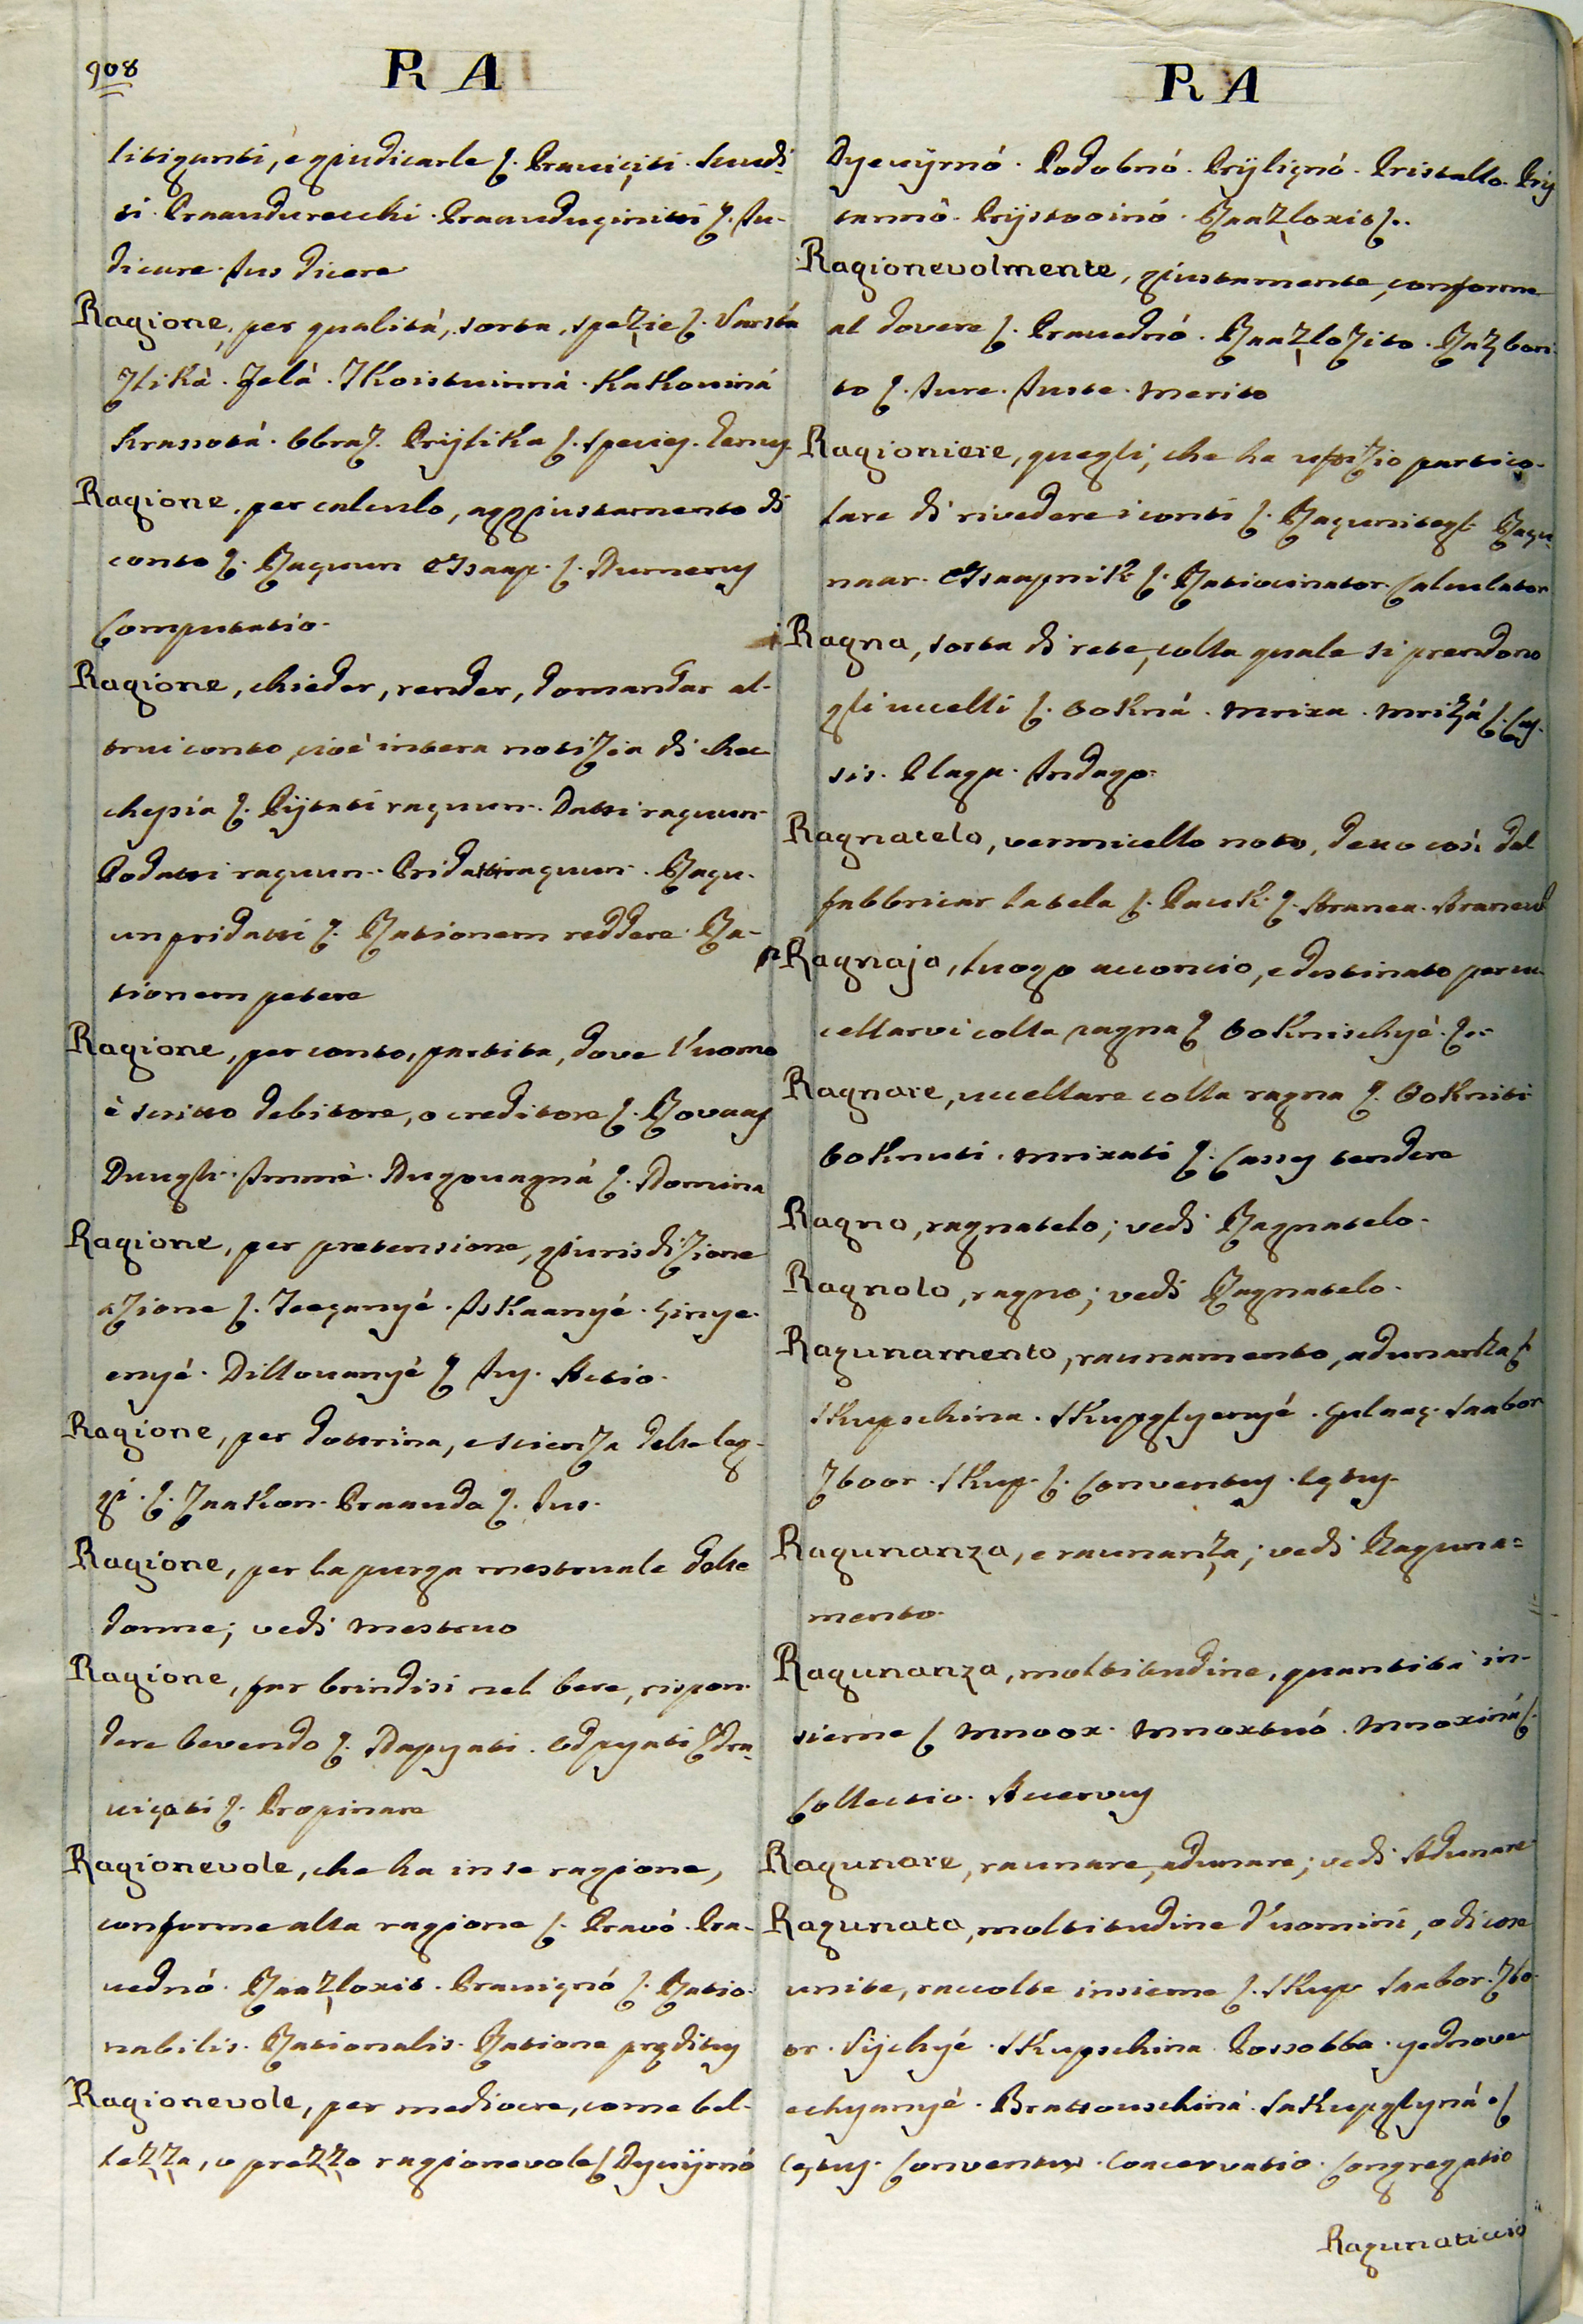 908
R A
litiganti, e giudicarle ſ. Prauiçiti. Suudi-
ti. Praaudurecchi. Praauduçinitti ſ. Iu-
dicare. Ius dicere
Ragione, per qualità, sorta, spezie ſ. Varsta
Zlikà. Jelà. IKoistuinná. KaKouiná
Krassotá. Obraz. Prijlika ſ. Species. Genus.
Ragione, per calculo, aggiustamento di
conto ſ. Raçuun Hsaap. ſ. Numerus
Computatio.
Ragione, chieder, render, domandar al-
trui conto, cioè intera notizia di chec
chesia ſ. Pijtati raçuun. Datti raçuun
Podatti raçuun. Pridatti raçuun. Raçu-
un pridatti ſ. Rationem reddere. Ra-
tionem petere
Ragione, per conto, partita, dove l'uomo
è scritto debitore, o creditore ſ. Rovaas
Duugh. Immè. Dugouagná ſ. Nomina
Ragione, per pretensione, giurisdizione
azione ſ. Teeçanyé. IsKaanyé. Çinye-
enyé. Dillouanyé ſ Ius. Actio.
Ragione, per dottrina, e scienza delle leg-
gi. ſ. ZaaKon. Praauda ſ. Ius.
Ragione, per la purga mestruale delle
donne; vedi Mestruo
Ragione, far brindisi nel bere, rispon-
dere bevendo ſ. Napyati. Odpyati Zdra-
uiçati ſ. Propinare
Ragionevole, che ha in se ragione,
conforme alla ragione ſ. Pravó. Pra-
uednó. Raazloxit. Prauiçnó ſ. Ratio-
nabilis. Rationalis. Ratione pręditus
Ragionevole, per mediocre, come bel-
lezza, o prezzo ragionevole ſ Dyeuijrnó
R A
Dyeuijrnó. Podobnó. Prijliçnó. Pristallo. Prij
tarnnô. Prijstooinó. Raazloxit ſ..
Ragionevolmente, giustamente, conforme
al dovere ſ. Prauednó. Raazlozito. Razbori-
to ſ. Iure. Iuste. Merito
Ragioniere, quegli, che ha ufizio partico-
lare di rivedere i conti ſ. Raçunitegl. Raçu-
naar. HsaapniK ſ. Ratiocinator. Calculator
Ragna, sorta di rete, colla quale si prendono
gli uccelli ſ. BoKná. Mrixa. Mrizá ſ. Cas-
sis. Plaga. Indago.
Ragnatelo, vermicello noto, detto così dal
fabbricar la tela ſ. PauK ſ. Aranea. Araneus
Ragnaja, luogo acconcio, e destinato per uc
cellarvi colla ragna ſ BoKnischyé. ſ..
Ragnare, uccellare colla ragna ſ. BoKniti
BoKnuti. Mrixati ſ. Casses tendere
Ragno, ragnatelo; vedi Ragnatelo.
Ragnolo, ragno; vedi Ragnatelo.
Ragunamento, raunamento, adunanza ſ
SKupschina. SKupglyenyé. Gulaaç. Saabor
Zboor. SKup. ſ. Conventus. Cętus.
Ragunanza, e raunanza; vedi Raguna=
mento.
Ragunanza, moltitudine, quantità in-
sieme ſ Mnoox. Mnoxtuó. Mnoxiná ſ.
Collectio. Acervus
Ragunare, raunare, adunare; vedi Adunare
Ragunata, moltitudine d'uomini, o di cose
unite, raccolte insieme ſ. SKup Saabor. Zbo-
or. Vijchyé. SKupschina. Possobba. yednove-
echyanyé. Brattouschiná. SaKupglyná ſ
Cętus. Conventus. Coacervatio. Congregatio
Ragunaticcio